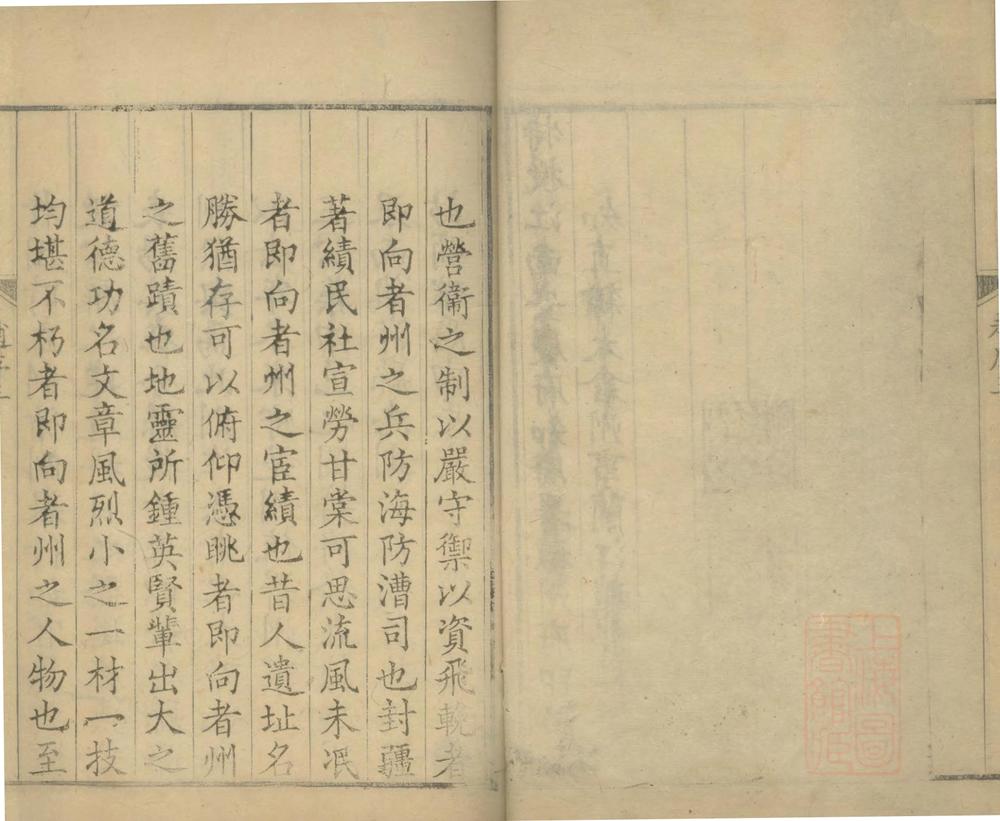 也營衞之制以嚴守禦以資飛輓者
即向者州之兵防海防漕司也封疆
著績民社宣勞甘棠可思流風未泯
者即向者州之宦績也昔人遺址名
勝猶存可以俯仰憑眺者即向者州
之舊蹟也地靈所鍾英賢輩出大之
道德功名文章風烈小之一材一技
均堪不朽者即向者州之人物也至